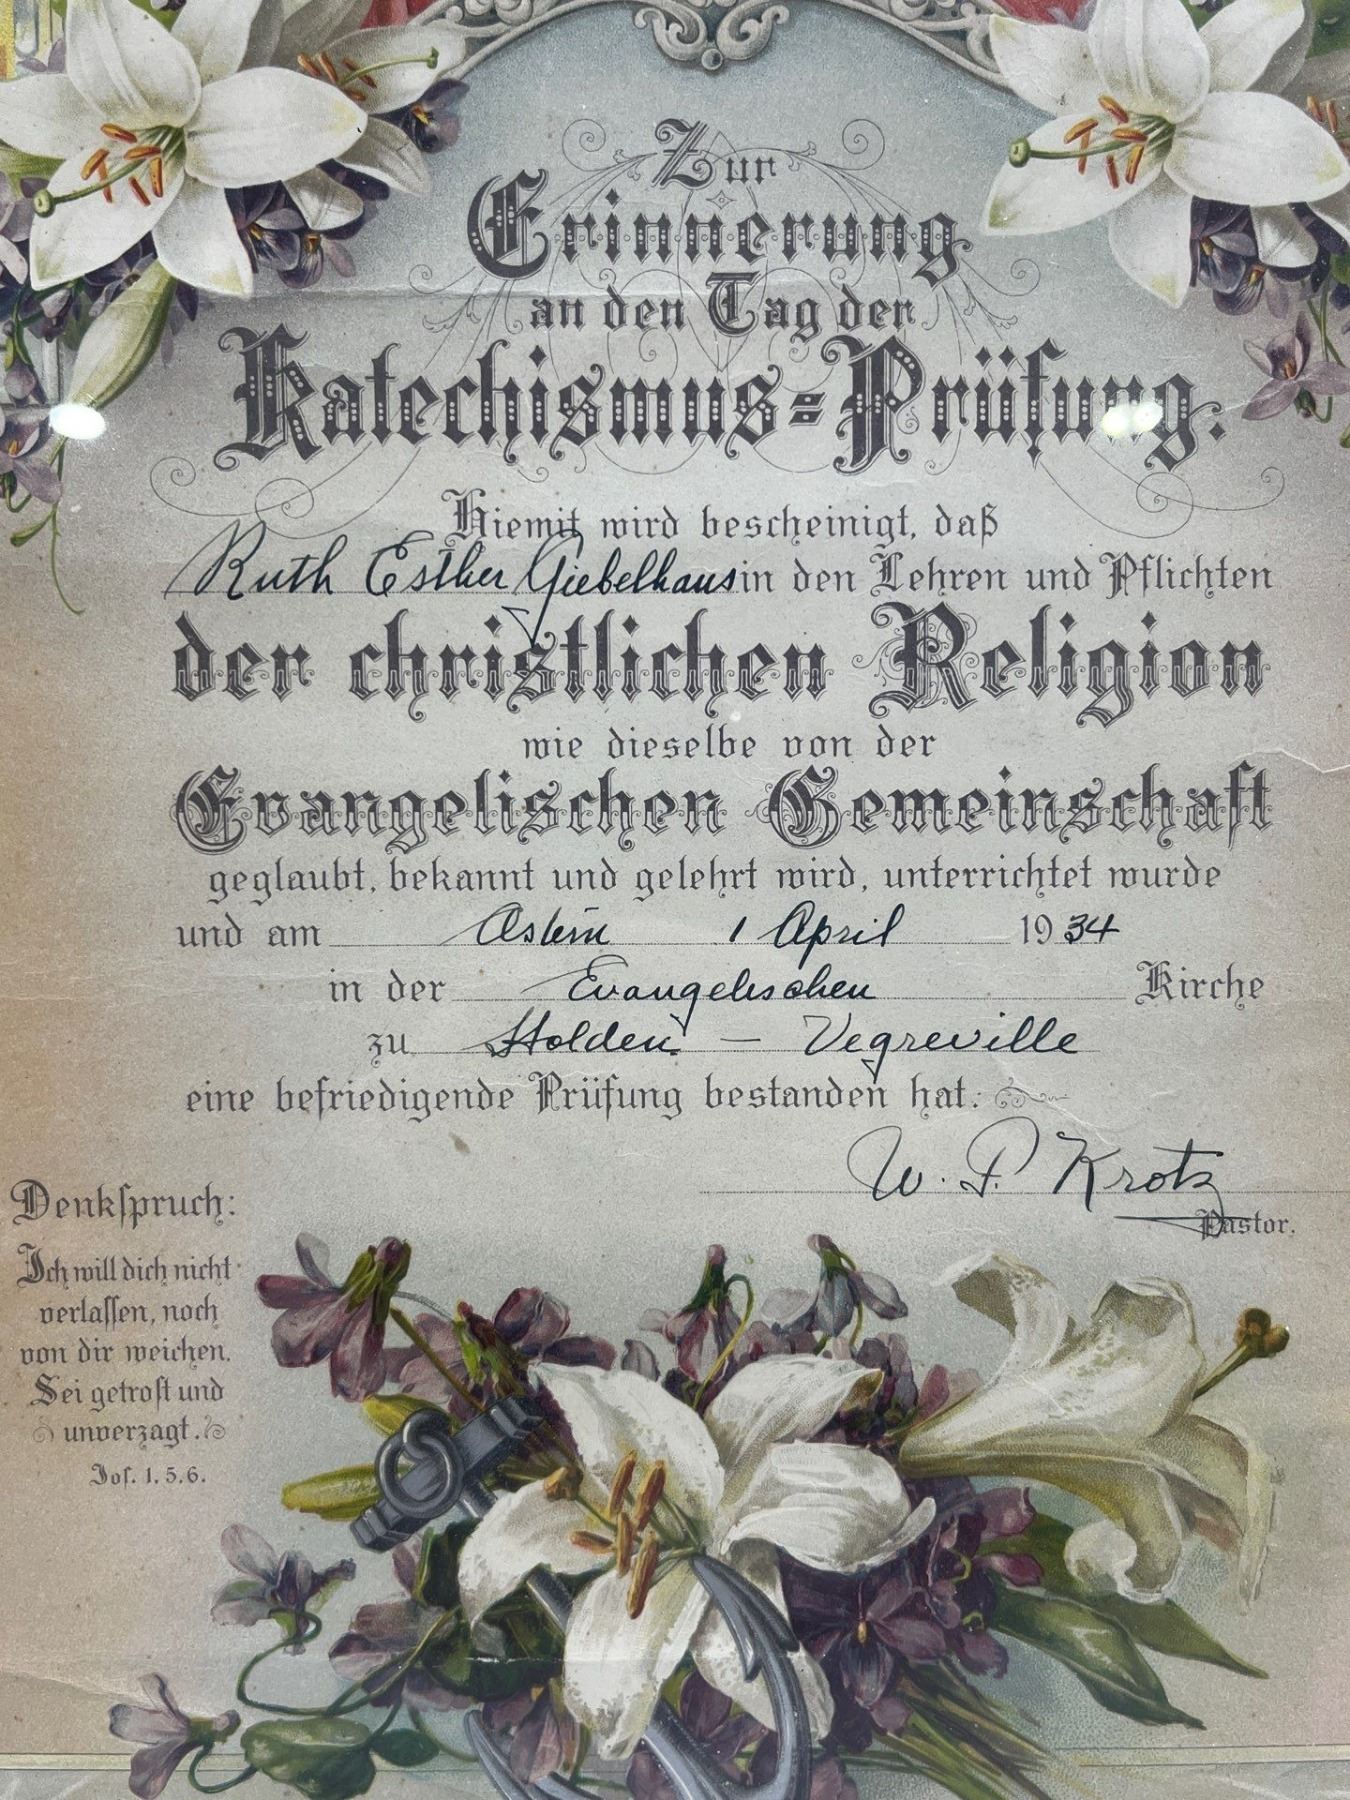 Zur
Erinnerung
an den Tag der
Katechismus=Prüfung.
Hiemit wird bescheinigt, daß
Ruth Esther Giebelhaus in den Lehren und Pflichten
der christlichen Religion
wie dieselbe von der
Evangelischen Gemeinschaft
geglaubt, bekannt und gelehrt wird, unterrichtet wurde
und am Ostern 1 April 1934
in der Evangelischen Kirche
zu Holden - Vegreville
eine befriedigende Prüfung bestanden hat.
W. P. Krotz
Pastor.
Denkſpruch:
Ich will dich nicht
verlaſſen, noch
von dir weichen.
Sei getroſt und
unverzagt.
Joſ. 1. 5. 6.